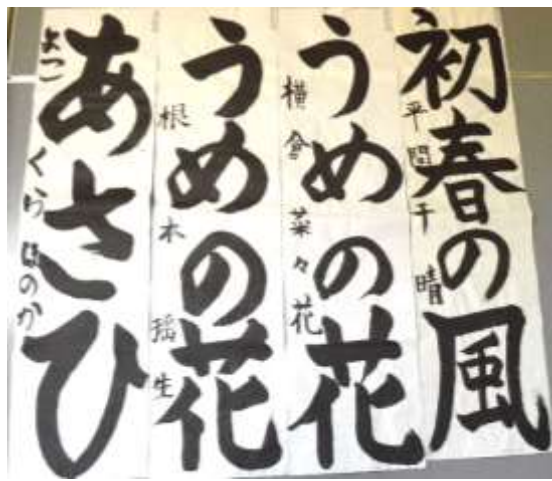 初春の風
平間千晴
うめの花
横倉菜々花
うめの花
根本瑶生
あさひ
よこくらほのか